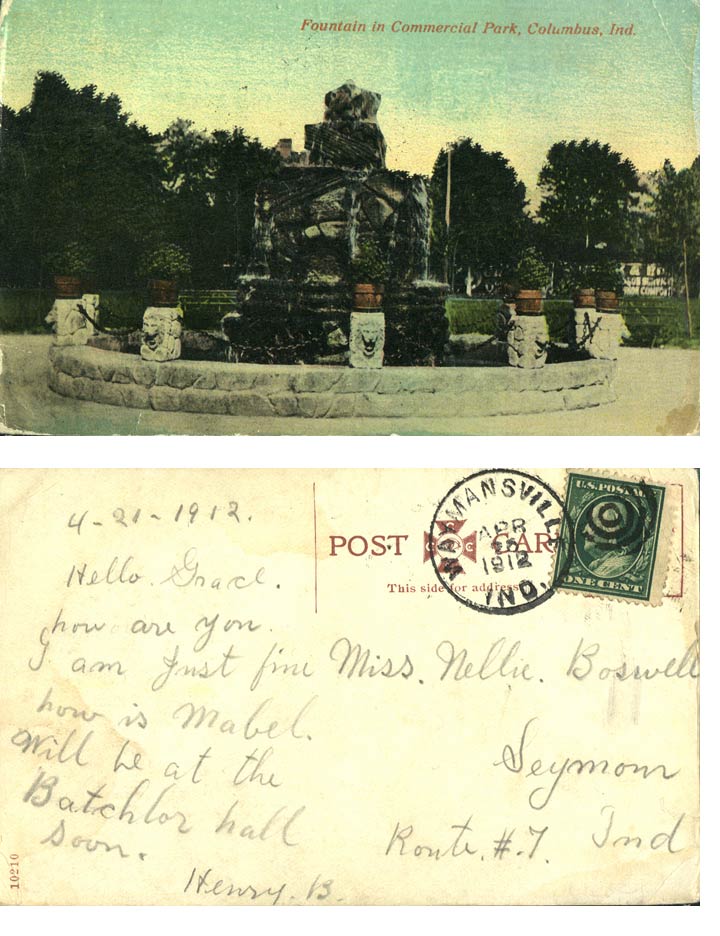 Fountain in Commercial Park, Columbus, Ind.
4-21-1912.
Hello. Grace.
how are you.
I am Just fine
how is Mabel.
Will be at the
Batchlor hall
soon.
Henry. B.
10210
POST CARD
This side for address
WAYMANSVILLE
APR
1912
IND.
U.S. POSTAGE
ONE CENT
Miss. Nellie. Boswell
Seymour
Route. #.7. Ind